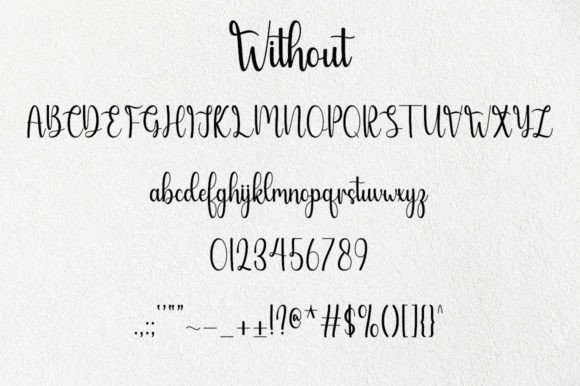 Without
ABCDEFGHIJKLMNOPQRSTUVWXYZ
abcdefghijklmnopqrstuvwxyz
0123456789
.,:;‘’“”~–_+±!?@*#$%()[]{}^